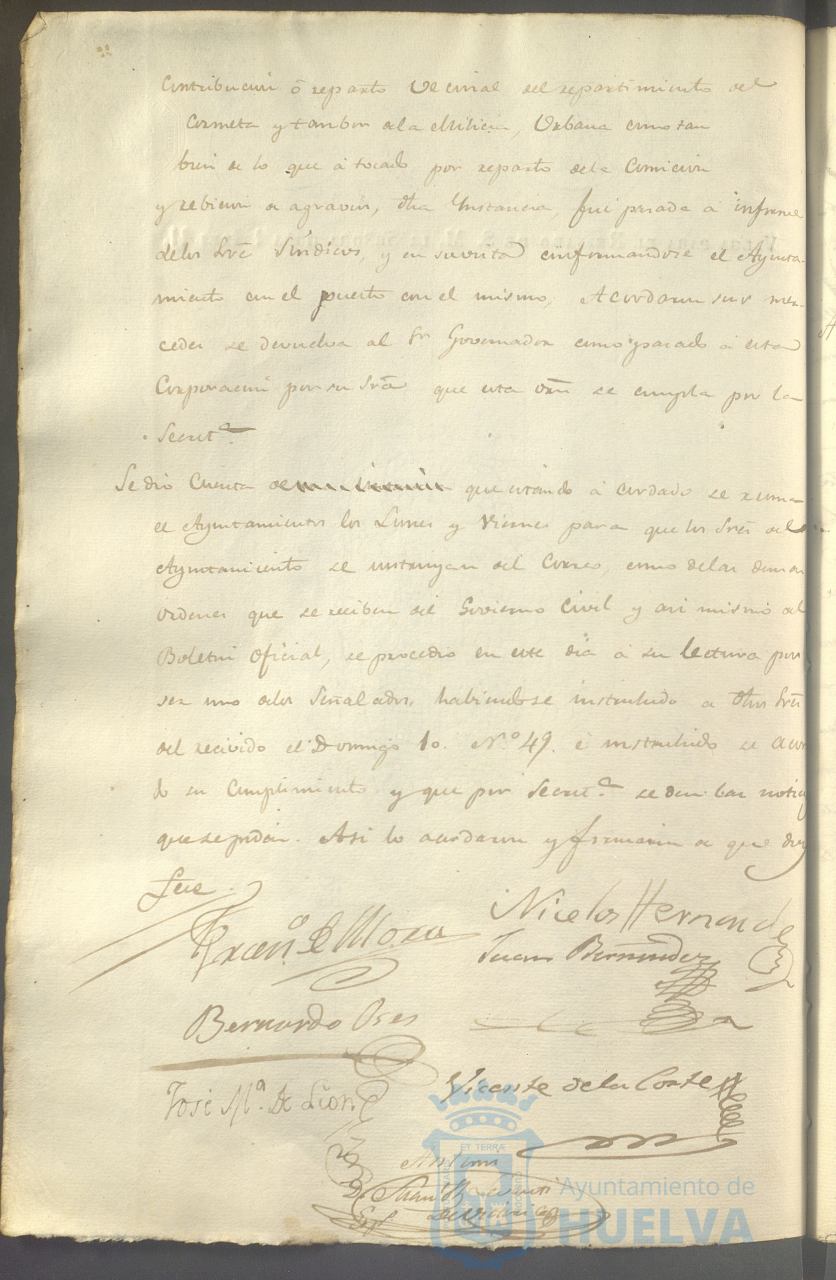 Contribucion ó reparto Vecinal del repartimiento del
Corneta y tambor dela Milicia, Urbana como tan
bien de lo que á tocado por reparto dela Comicion
y rebicion de agravios, dha Ynstancia, fue pasada á informe
delos Sres Sindicos, y en su vista conformandose el Ayunta-
miento con el puesto con el mismo, Acordaron sus mer-
cedes se devuelva al Sr Governador como pasado á esta
Corporacion por su Sria que esta orn se cumpla por la
Secretª
Se dio Cuenta de que estando á cordado se reuna
el Ayuntamientos los Lunes y Viernes para que los Sres del
Ayuntamiento se instruyan del Correo, como delas demas
ordenes que se reciban del Govierno Civil y asi mismo del
Boletin Oficial, se procedio en este dia á su lectura por
ser uno delos Señalados, habiendose instruhido a dhos Sres
del recivido el Domingo 10. Nº 49. é instruhido se acor
do su Cumplimiento y que por Secretª se den las notici
que se pidan. Asi lo acordaron y firmaron de que doy
fee.
Francº de Mora
Nicolas Hernandez
Juan Bermudez
Bernardo Oses
Vicente dela Corte
Jose Mª. De Leon
Ante mi
Ayuntamiento de
HUELVA